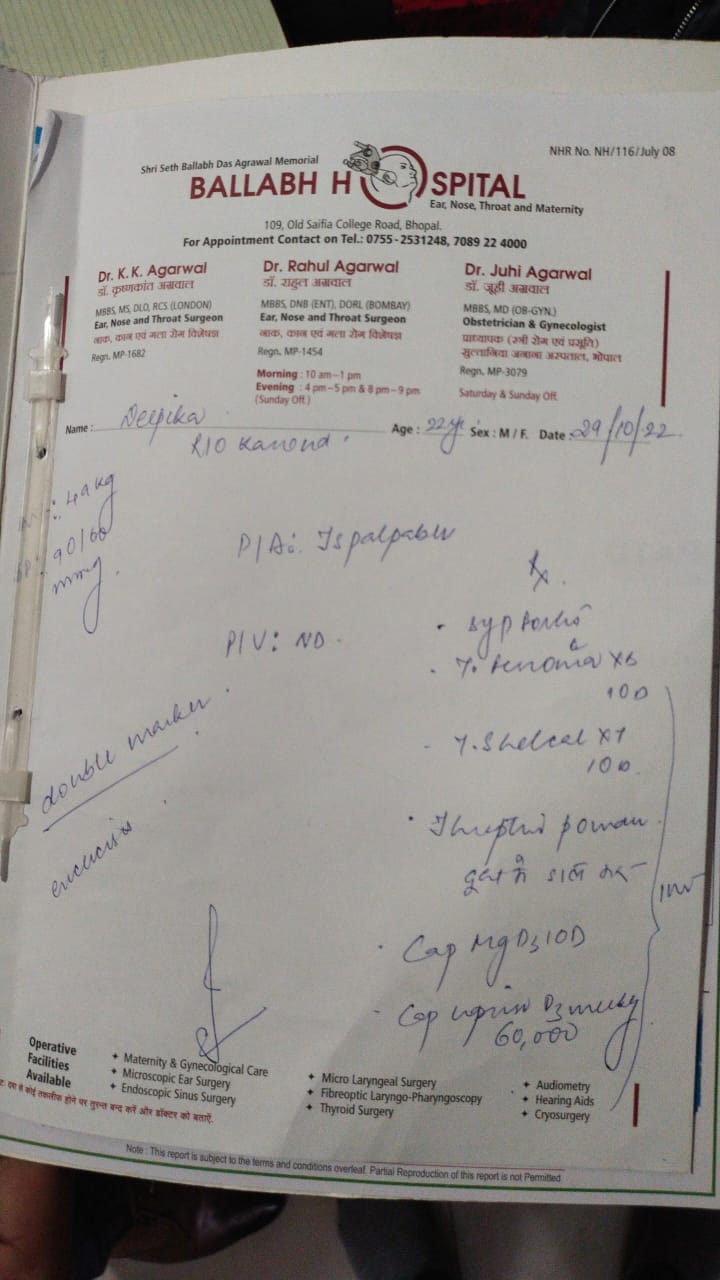 NHR No. NH/116/July 08
Shri Seth Ballabh Das Agrawal Memorial
BALLABH HOSPITAL
Ear, Nose, Throat and Maternity
109, Old Saifia College Road, Bhopal.
For Appointment Contact on Tel.: 0755-2531248, 7089 22 4000
Dr. K.K. Agarwal
डॉ. कृष्णकांत अग्रवाल
MBBS, MS, DLO, RCS (LONDON)
Ear, Nose and Throat Surgeon
नाक, कान एवं गला रोग विशेषज्ञ
Regn. MP-1682
Dr. Rahul Agarwal
डॉ. राहुल अग्रवाल
MBBS, DNB (ENT), DORL (BOMBAY)
Ear, Nose and Throat Surgeon
नाक, कान एवं गला रोग विशेषज्ञ
Regn. MP-1454
Morning : 10 am-1 pm
Evening : 4 pm-5 pm & 8 pm-9 pm
(Sunday Off.)
Dr. Juhi Agarwal
डॉ. जूही अग्रवाल
MBBS, MD (OB-GYN.)
Obstetrician & Gynecologist
प्राध्यापक (स्त्री रोग एवं प्रसूति)
सुल्तानिया जनाना अस्पताल, भोपाल
Regn. MP-3079
Saturday & Sunday Off.
Name : Deepika Age : 22 yr Sex : M / F. Date : 29/10/22
R/O
49 kg
90/60
mmHg
P/A:
Rx
P/V: ND.
Syp
T. x
10D
T. Shelcal x 1
10D
double marker
में
Cap Mg D3 10D
Cap D3
60,000
Operative
Facilities
Available
+ Maternity & Gynecological Care
+ Microscopic Ear Surgery
+ Endoscopic Sinus Surgery
+ Micro Laryngeal Surgery
+ Fibreoptic Laryngo-Pharyngoscopy
+ Thyroid Surgery
+ Audiometry
+ Hearing Aids
+ Cryosurgery
से कोई तकलीफ होने पर तुरन्त बन्द करें और डॉक्टर को बताऐं.
Note : This report is subject to the terms and conditions overleaf. Partial Reproduction of this report is not Permitted